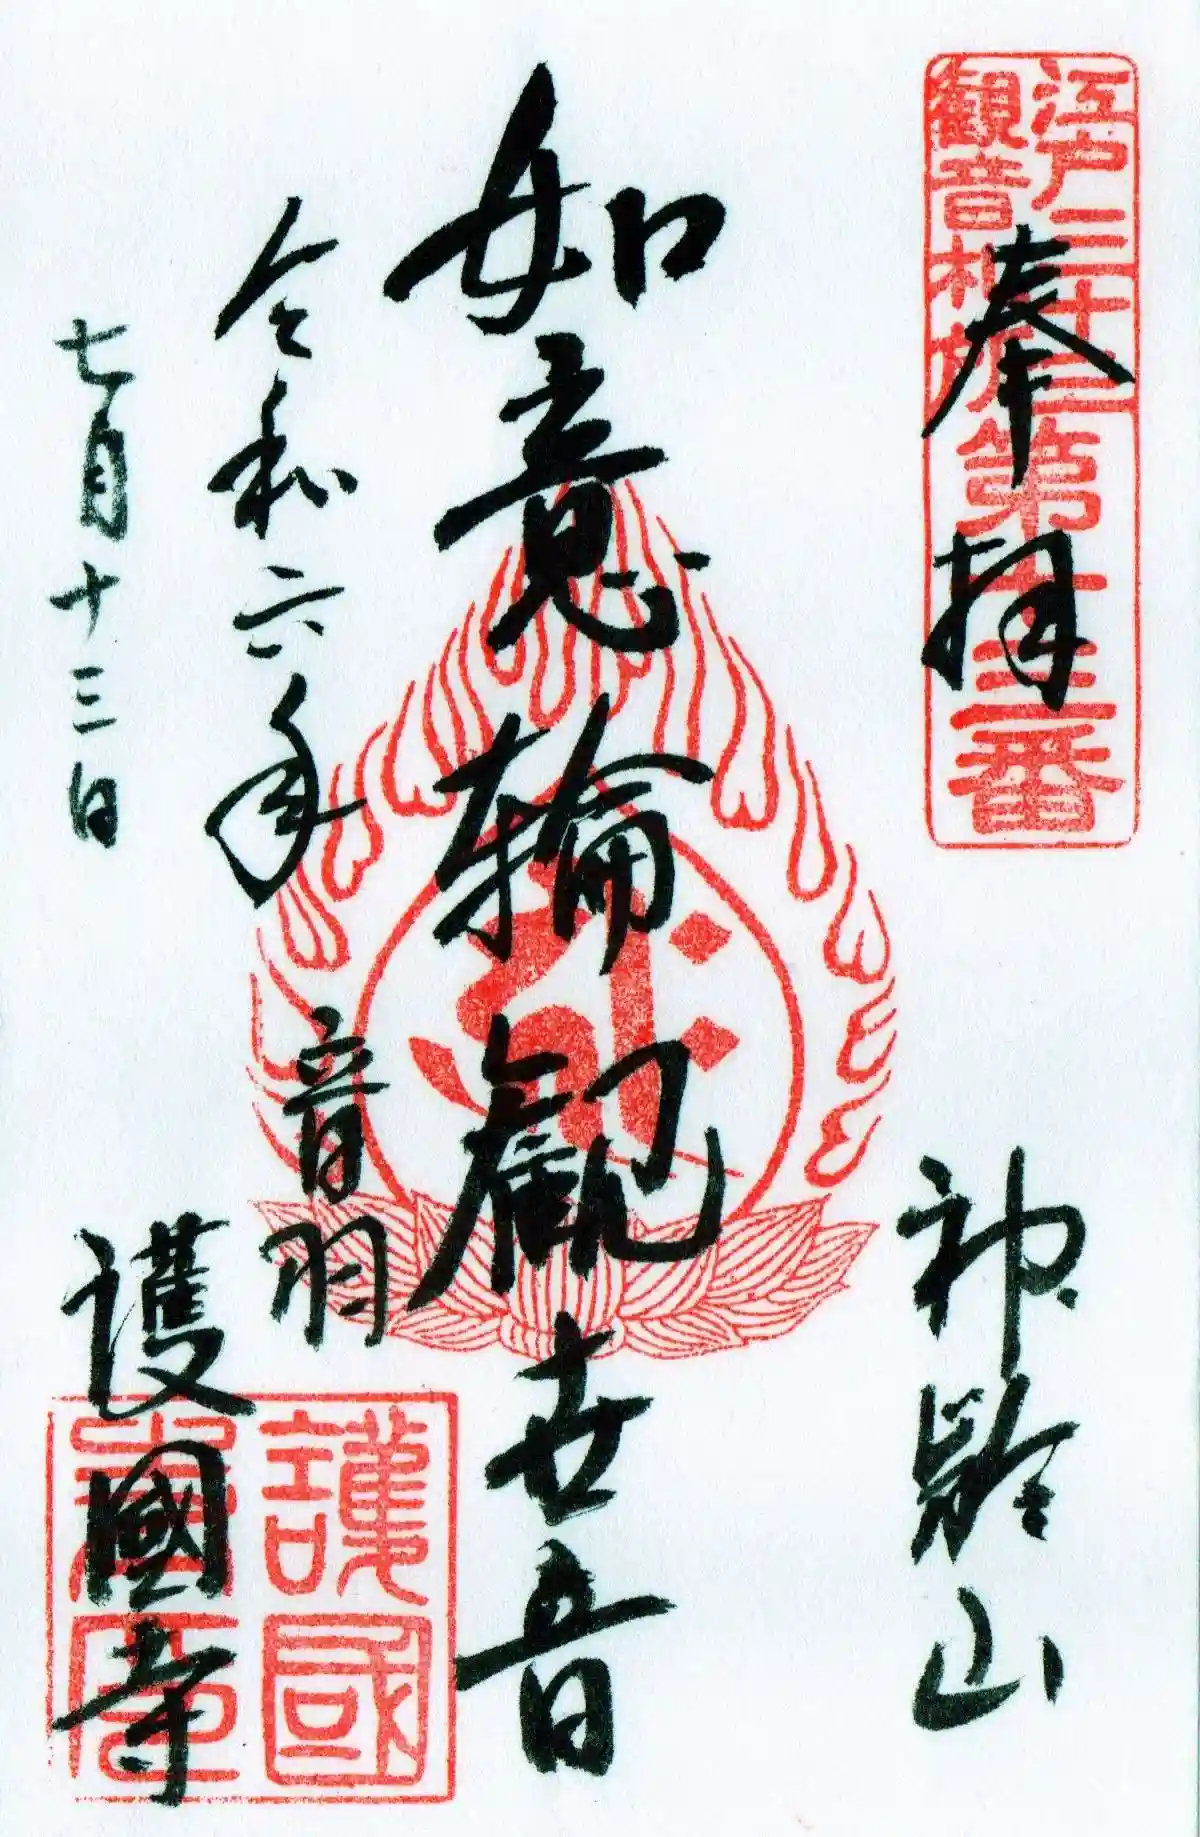 江戸三十三
観音札所
第十三番
奉拝
神齢山
如意輪観世音
令和六年
七月十三日
音羽
護國寺
護國